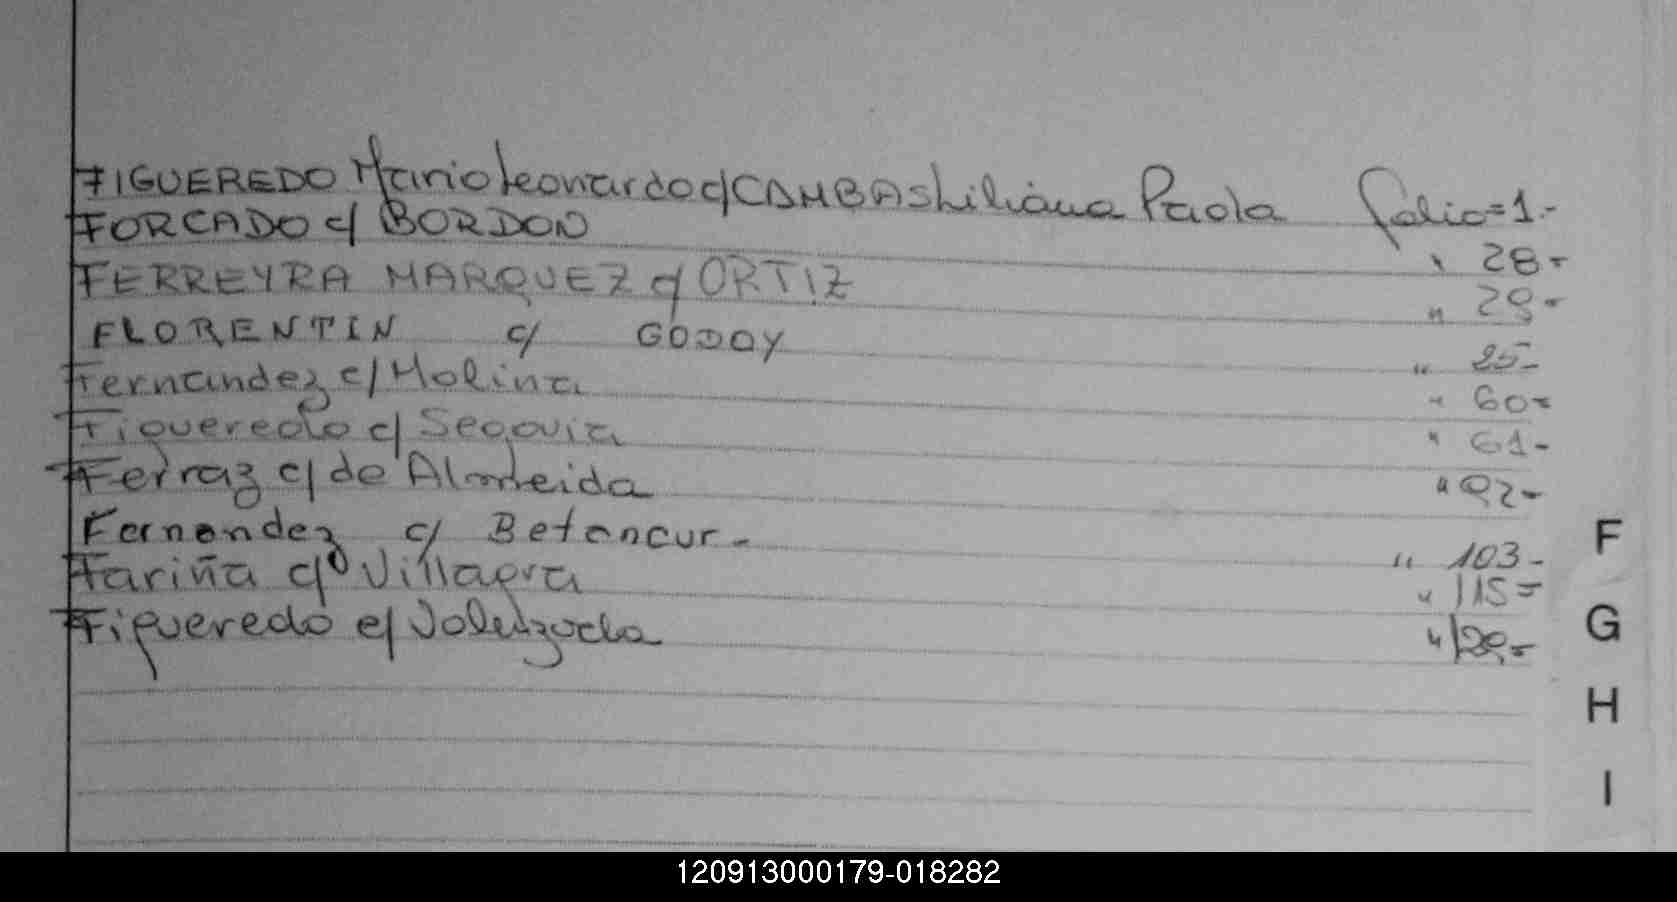 FIGUEREDO Mario Leonardo c/ CAMBAS Liliana Paola folio=1.-
FORCADO c/ BORDON " 28-
FERREYRA MARQUEZ c/ ORTIZ " 29-
FLORENTIN c/ GODOY "
Fernandez c/ Molina " 60-
Figueredo c/ Segovia " 61-
Ferraz c/ de Almeida " 92-
Fernandez c/ Betancur- " 103-
Fariña c/ Villagra " 115-
Figueredo c/
F
G
H
I
120913000179-018282